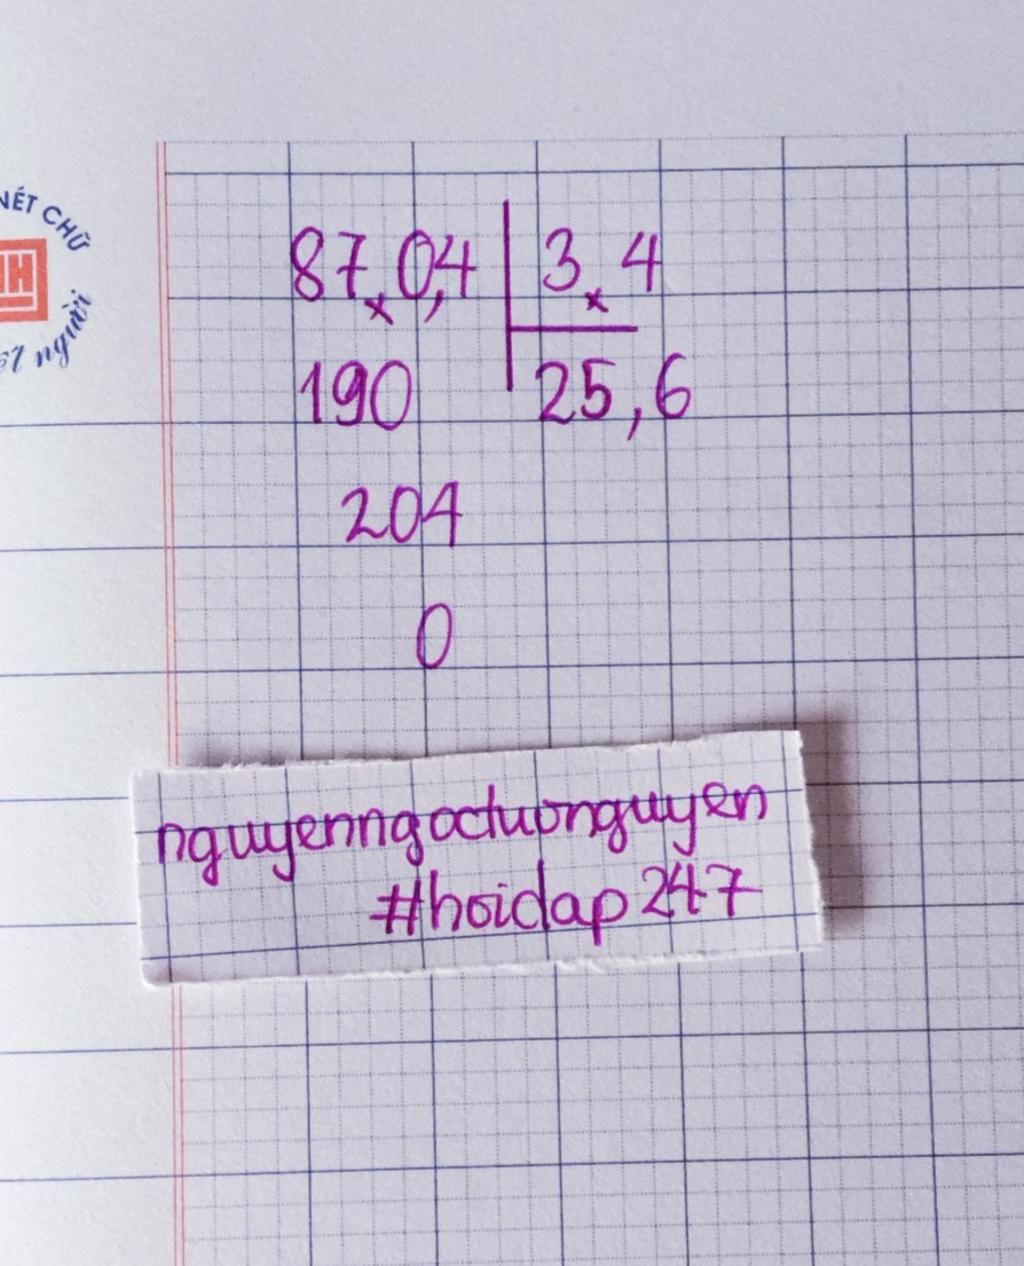 NÉT CHỮ
người
87,0,4 3,4
190 25,6
204
0
nguyenngoctuonguyen
#hoidap247